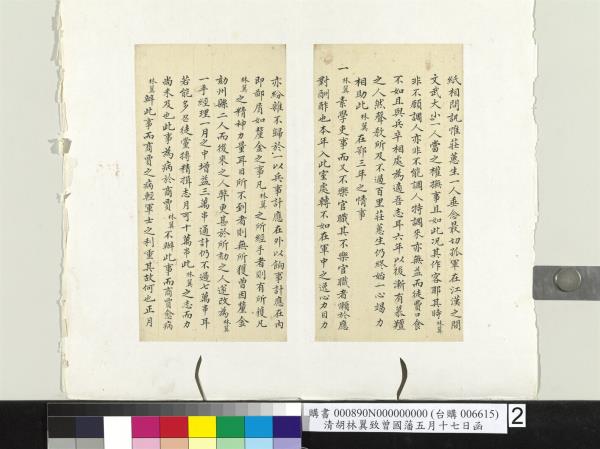 紙相問訊惟莊蕙生一人垂念最切孤軍在江漢之間
文武大小一人當之權撰事且如此况其作客耶其時林翼
非不願調人亦非不能調人特調來亦無益而徒費口食
不如且與兵卒相處為適吾志耳六年以後漸有慕羶
之人然聲敎所及不過百里莊蕙生仍終始一心竭力
相助此林翼在鄂三年之情事
一林翼素學吏事而又不樂官職其不樂官職者懶於應
對酬酢也本年入此室處轉不如在軍中之逸心力目力
亦紛雜不歸於一以兵事計應在外以餉事計應在內
即鄙屑如釐金之事凡林翼之所經手者則有所獲凡
林翼之精神力量耳目所不到者則無所獲曾因釐金
劾州縣二人而後來之人弊更甚於所劾之人遂改為林翼
一手經理一月之中增益三萬串通計仍不過七萬串耳
若能多召徒黨得精揖志月可十萬串此林翼之志而力
尚未及也此事為病於商賈林翼不辦此事而商賈愈病
林翼辦此事而商賈之病輕軍士之利重其故何也正月
購書 000890N000000000 (台購 006615)
清胡林翼致曾國藩五月十七日函
2